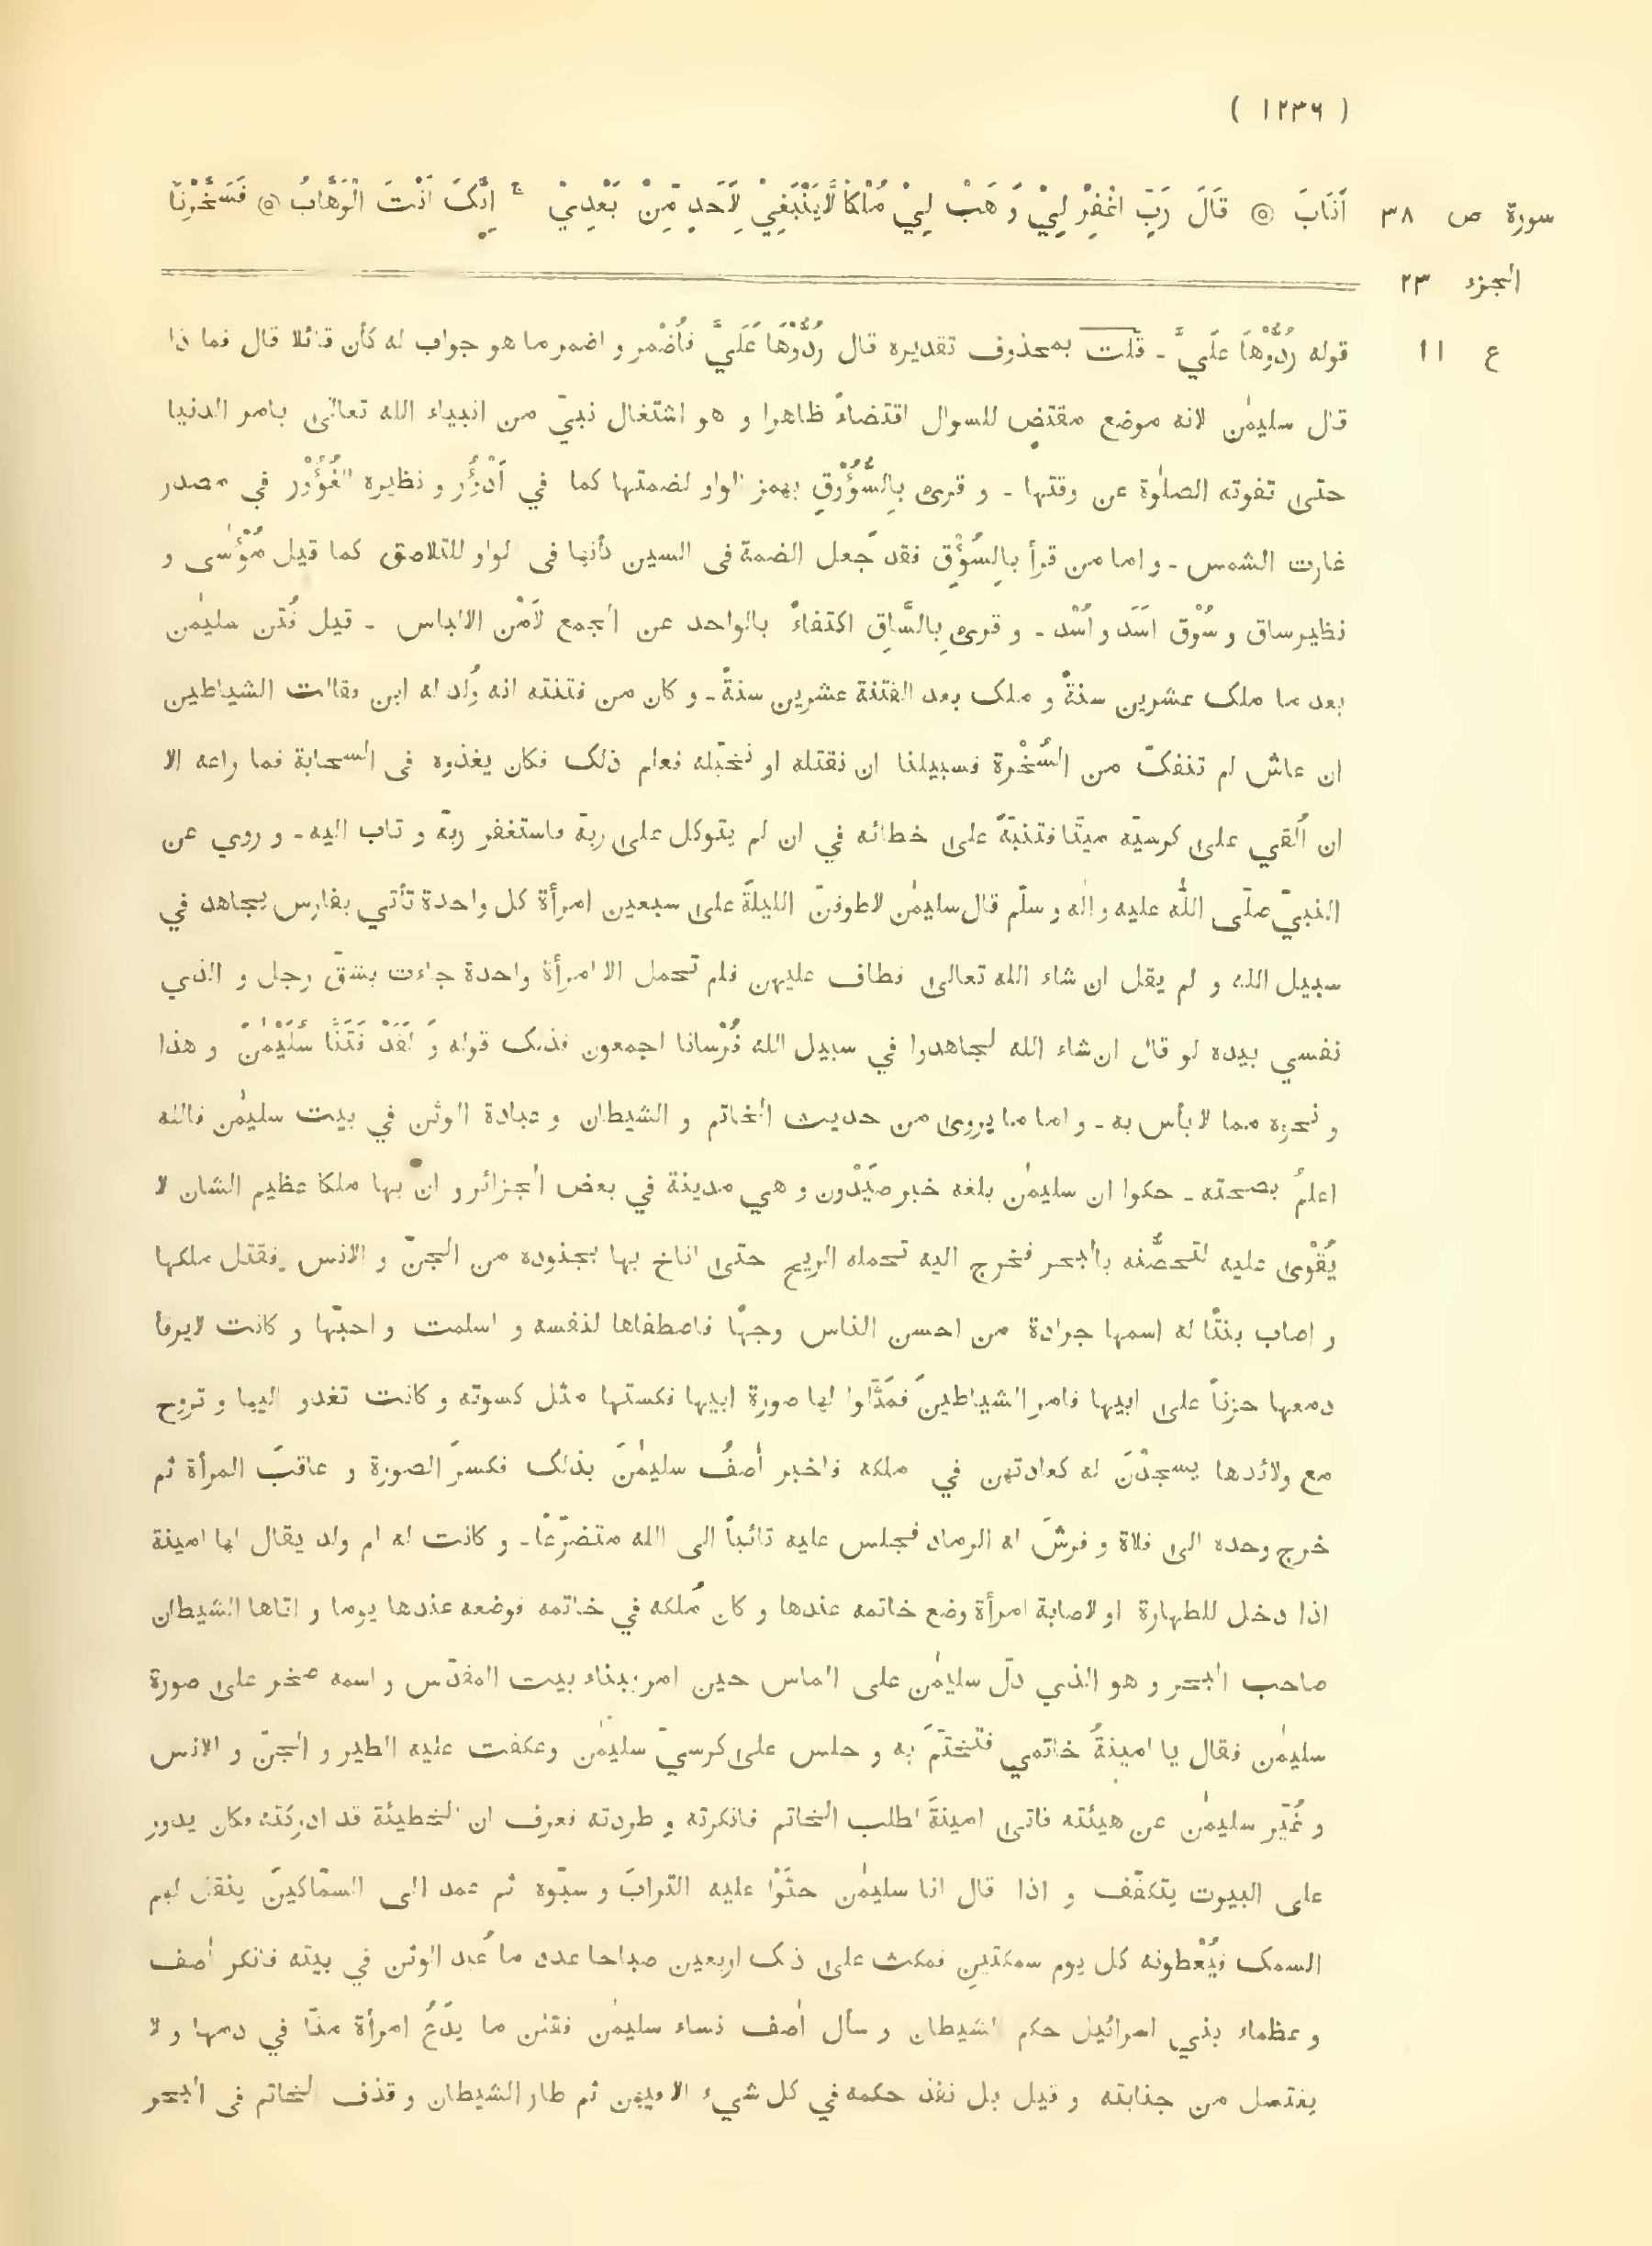 ( ١٢٣٦ )
سورة ص ٣٨
اَنَابَ ۞ قَالَ رَبِّ اغْفِرْ لِيْ وَ هَبْ لِيْ مُلْكًا لَّا يَنْبَغِيْ لِاَحَدٍ مِّنْ بَعْدِيْ ۚ اِنَّكَ اَنْتَ الْوَهَّابُ ۞ فَسَخَّرْنَا
الجزء ٢٣
ع ١١
قوله رُدُّوْهَا عَلَيَّ ـ قلت بمحذوف تقديره قال رُدُّوْهَا عَلَيَّ فاُضْمر و اضمر ما هو جواب له كأن قائلا قال فما ذا
قال سليمٰن لانه موضع مقتضٍ للسوال اقتضاءً ظاهرا و هو اشتغال نبيّ من انبياء الله تعالىٰ بامر الدنيا
حتى تفوته الصلٰوة عن وقتها ـ و قرئ بِالسُّؤُوْقِ بهمز الواو لضمتها كما في اَدْؤُر و نظيره الغُؤُوْر في مصدر
غارت الشمس ـ و اما من قرأ بِالسُؤْقِ فقد جعل الضمة فى السين كأنها فى الواو للتلاصق كما قيل مُؤْسٰى و
نظير ساق و سُوْق اَسَد و اُسْد ـ و قرئ بِالسَّاقِ اكتفاءً بالواحد عن الجمع لاَمْن الالباس ـ قيل فُتن سليمٰن
بعد ما ملك عشرين سنةً و ملك بعد الفتنة عشرين سنةً ـ و كان من فتنته انه وُلد له ابن فقالت الشياطين
ان عاش لم تنفكّ من السُخْرة فسبيلنا ان نقتله او نُخبّله فعلم ذلك فكان يغذوه فى السحابة فما راعه الا
ان اُلقي على كرسيّه ميّتًا فتنبّهَ على خطائه في ان لم يتوكل على ربهّ فاستغفر ربهّ و تاب اليه ـ و روي عن
النبيّ صلّى اللّٰه عليه و اٰله و سلّم قال سليمٰن لاطوفنّ الليلةَ على سبعين امرأة كل واحدة تأتي بفارس يجاهد في
سبيل الله و لم يقل ان شاء الله تعالى فطاف عليهن فلم تحمل الا امرأة واحدة جاءت بشقّ رجل و الذي
نفسي بيده لو قال ان شاء الله لجاهدوا في سبيل الله فُرْسانا اجمعون فذلك قوله وَ لَقَدْ فَتَنَّا سُلَيْمٰنَ و هذا
و نحوه مما لا بأس به ـ و اما ما يروى من حديث الخاتم و الشيطان و عبادة الوثن في بيت سليمٰن فالله
اعلمُ بصحته ـ حكوا ان سليمٰن بلغه خبر صَيْدُون و هي مدينة في بعض الجزائر و ان بها ملكا عظيم الشان لا
يُقْوى عليه لتحصُّنه بالبحر فخرج اليه تحمله الريح حتى اناخ بها بجنوده من الجنّ و الانس فقتل ملكها
و اصاب بنتًا له اسمها جرادة من احسن الناس وجهًا فاصطفاها لنفسه و اسلمت و احبّها و كانت لايرقأ
دمعها حزناً على ابيها فامر الشياطينَ فمَثّلوا لها صورة ابيها فكستها مثل كسوته و كانت تغدو اليها و تروح
مع ولائدها يسجُدْنَ له كعادتهن في ملكه فاخبر اٰصفُ سليمٰنَ بذلك فكسرَ الصورة و عاقبَ المرأة ثم
خرج وحده الى فلاة و فرشَ له الرماد فجلس عليه تائباً الى الله متضرّعًا ـ و كانت له ام ولد يقال لها امينة
اذا دخل للطهارة او لاصابة امرأة وضع خاتمه عندها و كان مُلكه في خاتمه فوضعه عندها يوما و اتاها الشيطان
صاحب البحر و هو الذي دلّ سليمٰن على الماس حين امر ببناء بيت المقدّس و اسمه صخر على صورة
سليمٰن فقال يا امينةُ خاتمي فتختّمَ به و جلس على كرسيّ سليمٰن وعكفت عليه الطير و الجنّ و الانس
و غُيّر سليمٰن عن هيئته فاتى امينةَ لطلب الخاتم فانكرته و طردته فعرف ان الخطيئة قد ادركته فكان يدور
على البيوت يتكفّف و اذا قال انا سليمٰن حثَوْا عليه الترابَ و سبّوه ثم عمد الى السمّاكينَ ينقل لهم
السمك فيُعْطونه كل يوم سمكتينِ فمكث على ذلك اربعين صباحا عدد ما عُبد الوثن في بيته فانكر اٰصف
و عظماء بني اسرائيل حكم الشيطان و سأل اٰصف نساء سليمٰن فقلن ما يدَعُ امرأة منّا في دمها و لا
يغتسل من جنابته و قيل بل نفذ حكمه في كل شيء الا فيهن ثم طار الشيطان و قذف الخاتم فى البحر